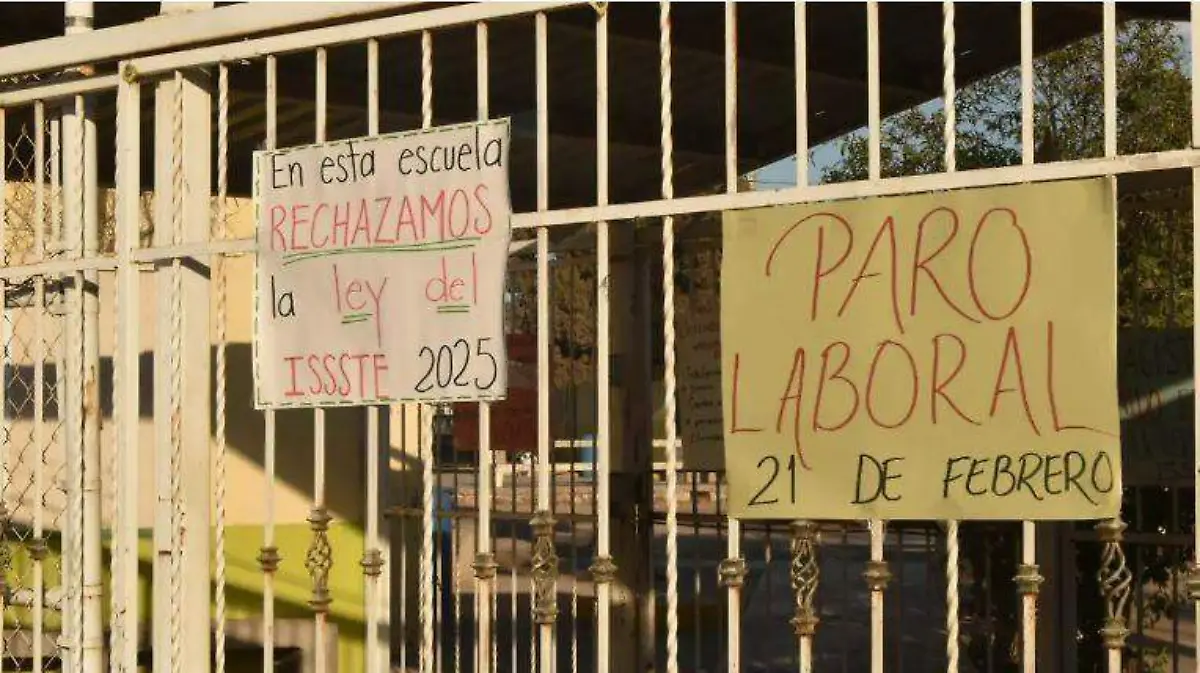 En esta escuela
RECHAZAMOS
la ley del
ISSSTE 2025
PARO
LABORAL
21 DE FEBRERO